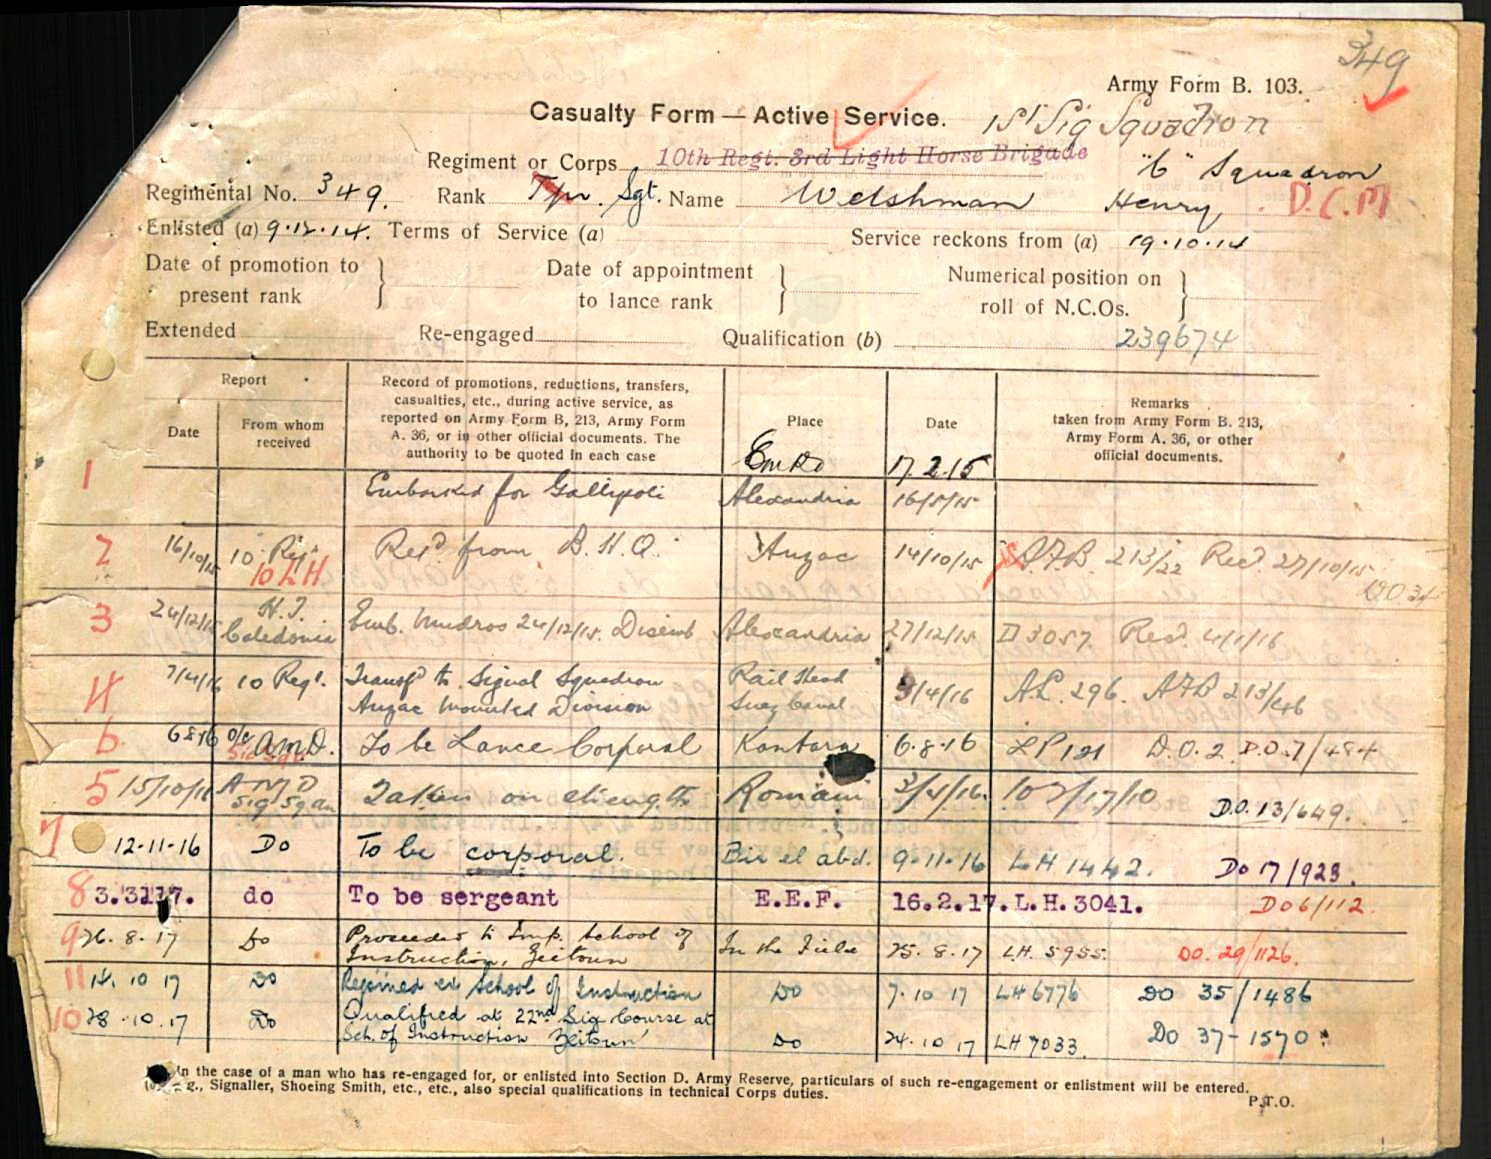 349
Army Form B. 103.
Casualty Form — Active Service.
1st Sig Squadron
Regiment or Corps 10th Regt. 3rd Light Horse Brigade
"C" Squadron
Regimental No. 349. Rank Tpr. Sgt. Name Welshman Henry D.C.M
Enlisted (a) 9.12.14. Terms of Service (a) Service reckons from (a) 19.10.14
Date of promotion to present rank } Date of appointment to lance rank } Numerical position on roll of N.C.Os. }
Extended Re-engaged Qualification (b) 239674
Report
Date
From whom received
Record of promotions, reductions, transfers,
casualties, etc., during active service, as
reported on Army Form B, 213, Army Form
A. 36, or in other official documents. The
authority to be quoted in each case
Place
Date
Remarks
taken from Army Form B. 213,
Army Form A. 36, or other
official documents.
17.2.15
1 Embarked for Gallipoli Alexandria 16/5/15
2 16/10/15 10 Regt 10 LH from B.H.Q. Anzac 14/10/15 AFB. 213/22 Recd. 27/10/15
DO 34
3 24/12/15 H.T. Caledonia Emb. Mudros 24/12/15. Disemb Alexandria 27/12/15 D3057 Recd. 4/1/16
4 7/4/16 10 Regt. Transfd to Signal Squadron Rail Head /4/16 AL. 296. AFB 213/46
Anzac Mounted Division Suez Canal
6 6 8 16 o/c A.M.D. To be Lance Corporal Kantara 6.8.16 LP 121 D.O.2. D.O.7/484
5 15/10/16 A M D Sig Sqdn Taken on strength Romani 107/17/10 D.O. 13/649.
7 12-11-16 Do To be corporal. Bir el abd. 9-11-16 LH 1442. Do 17/923.
8 3.3.17. do To be sergeant E.E.F. 16.2.17. L.H.3041. DO6/112.
9 26.8.17 Do Proceeded to Imp. School of In the Field 25.8.17 LH. 5955. DO. 29/1126.
Instruction, Zeitoun
11 14.10 17 Do Rejoined ex School of Instruction Do 7.10 17 LH6776 DO 35/1486
10 28.10.17 Do Qualified at 22nd Sig Course at
Sch. of Instruction Zeitoun Do 24.10 17 LH7033. Do 37-1570.
In the case of a man who has re-engaged for, or enlisted into Section D. Army Reserve, particulars of such re-engagement or enlistment will be entered.
g., Signaller, Shoeing Smith, etc., etc., also special qualifications in technical Corps duties.
P.T.O.